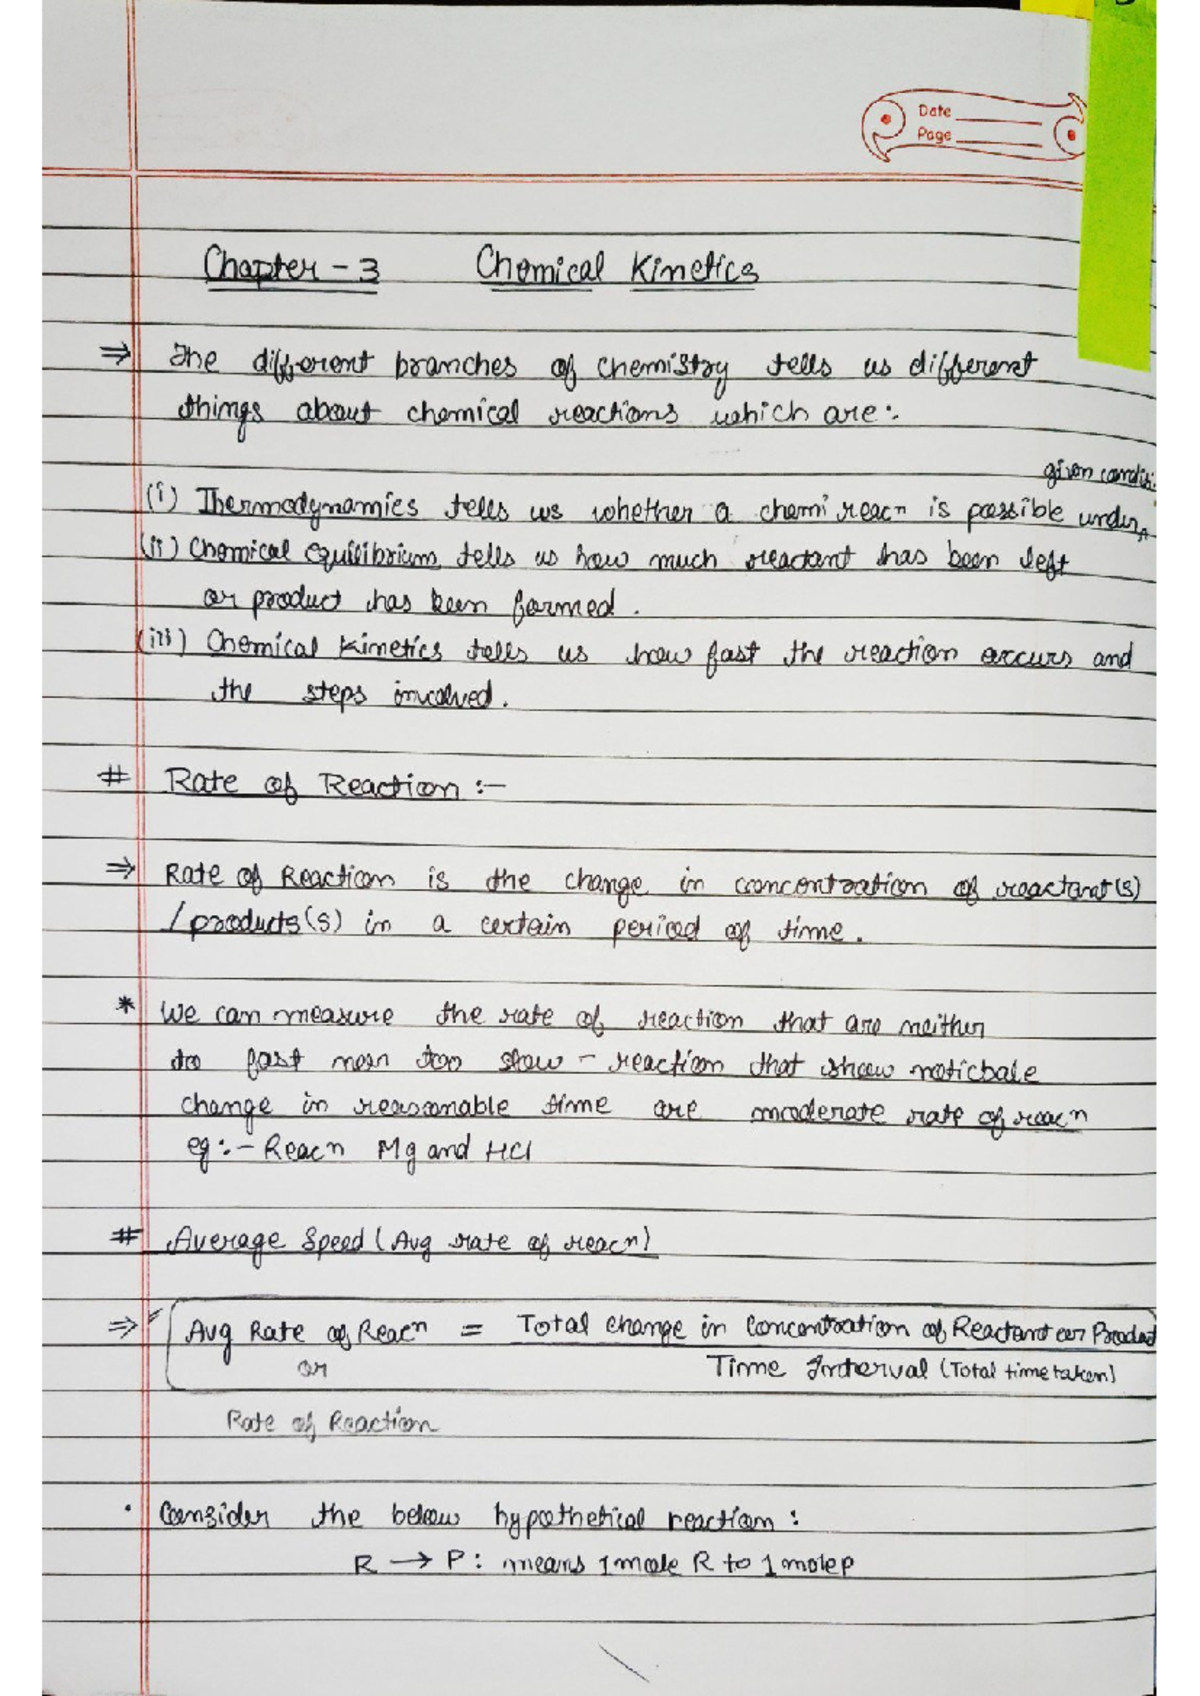 Date
Page
Chapter - 3 Chemical Kinetics
⇒ The different branches of chemistry tells us different
things about chemical reactions which are:
given condit
(i) Thermodynamics tells us whether a chemi reacn is possible under^
(ii) Chemical equilibrium tells us how much reactant has been left
or product has been formed.
(iii) Chemical Kinetics tells us how fast the reaction occurs and
the steps involved.
# Rate of Reaction :-
⇒ Rate of Reaction is the change in concentration of reactant(s)
/ products(s) in a certain period of time.
* We can measure the rate of reaction that are neither
to fast nor too slow - reaction that show noticbale
change in reasonable time are moderate rate of reacn
eg:- Reacn Mg and HCl
# Average Speed (Avg rate of reacn)
⇒ Avg Rate of Reacn = Total change in Concentration of Reactant or Product
or Time Interval (Total time taken)
Rate of Reaction
• Consider the below hypothetical reaction:
R → P: means 1 mole R to 1 mole p